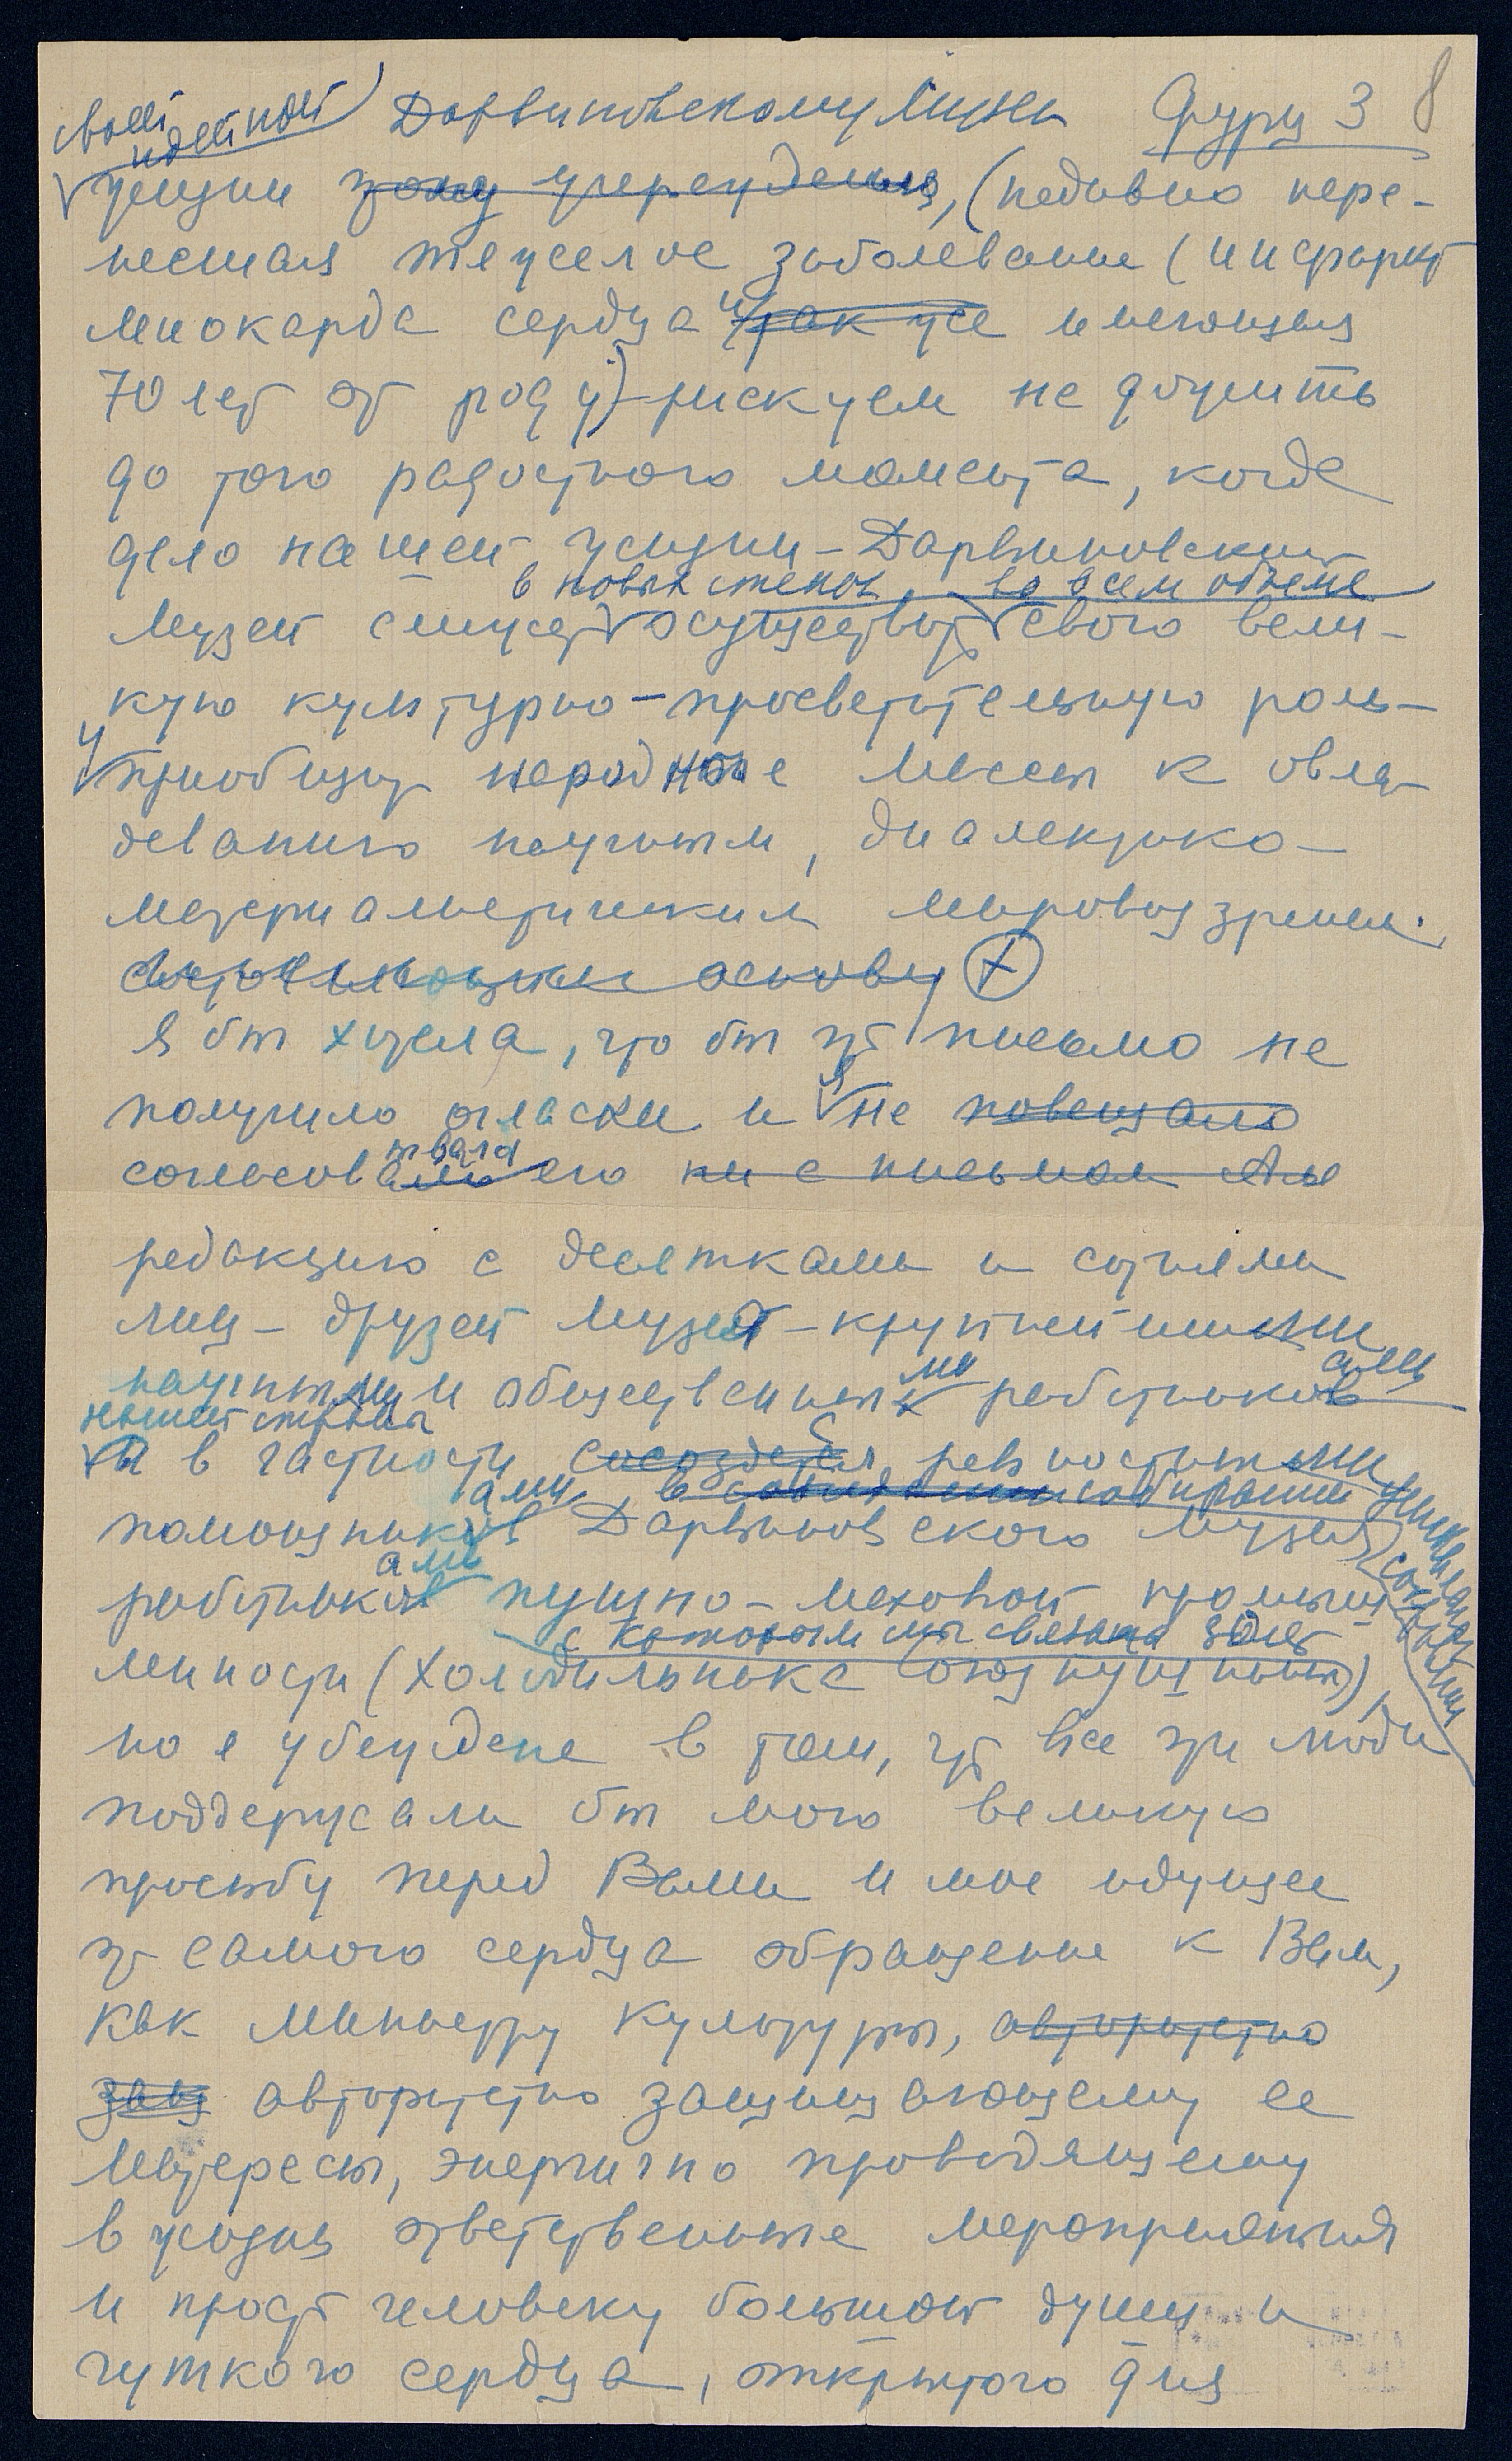 моей
идейной Дарвиновскому Музею Фурц 3 8
жизни этому учреждению, (недавно пере-
несшая тяжелое заболевание (инфаркт
миокарда сердца и так же имеющая
70 лет от роду) – рискуем не дожить
до того радостного момента, когда
дело нашей жизни – Дарвиновский
в новых стенах, во всем объеме
Музей сможет осуществить свою вели-
кую культурно-просветительную роль –
приобщить народные массы к овла-
деванию научным, диалектико-
материалистическим мировоззрением.
основу +
Я бы хотела, что бы это письмо не
получило огласки и я не
согласовывала его ни с письмом
редакцию с десятками и сотнями
лиц – друзей Музея – крупнейшими
научными и общественными работниками
нашей страны
и в частности с ревностными
помощниками в собирании уникальных
Дарвиновского Музея
работниками пушно-меховой промыш-
с которыми мы связаны
ленности (Холодильника Союзпушнины),
но я убеждена в том, что все эти люди
поддержали бы мою великую
просьбу перед Вами и мое идущее
от самого сердца обращение к Вам,
как Министру Культуры, авторитетно
защ авторитетно защищающему ее
интересы, энергично проводящему
в жизнь ответственные мероприятия
и просто человеку большой души и
чуткого сердца, открытого для